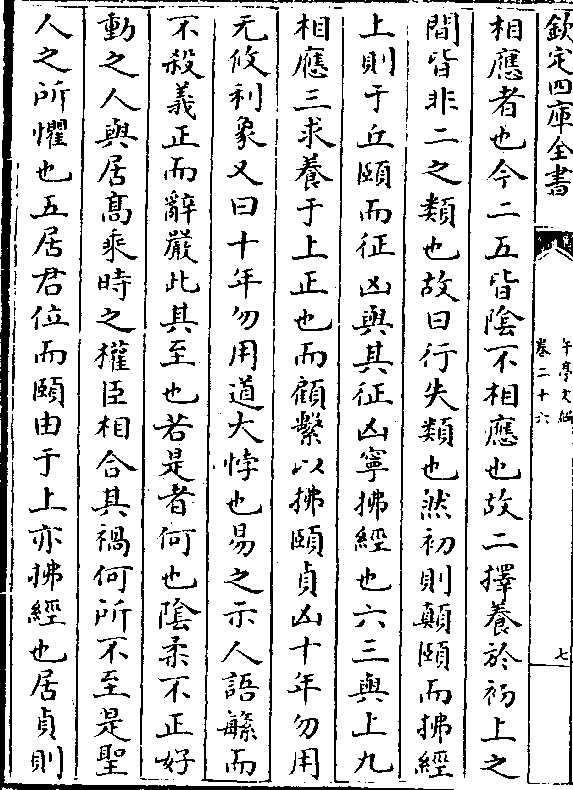 欽定四庫全書
午亭文編
卷二十六
七
相應者也今二五皆陰不相應也故二擇養於初上之
間皆非二之類也故曰行失類也然初則顛頤而拂經
上則于丘頤而征凶與其征凶寧拂經也六三與上九
相應三求養于上正也而顧繫以拂頤貞凶十年勿用
无攸利象又曰十年勿用道大悖也易之示人語緐而
不殺義正而辭嚴此其至也若是者何也陰柔不正好
動之人與居髙乘時之權臣相合其禍何所不至是聖
人之所懼也五居君位而頤由于上亦拂經也居貞則